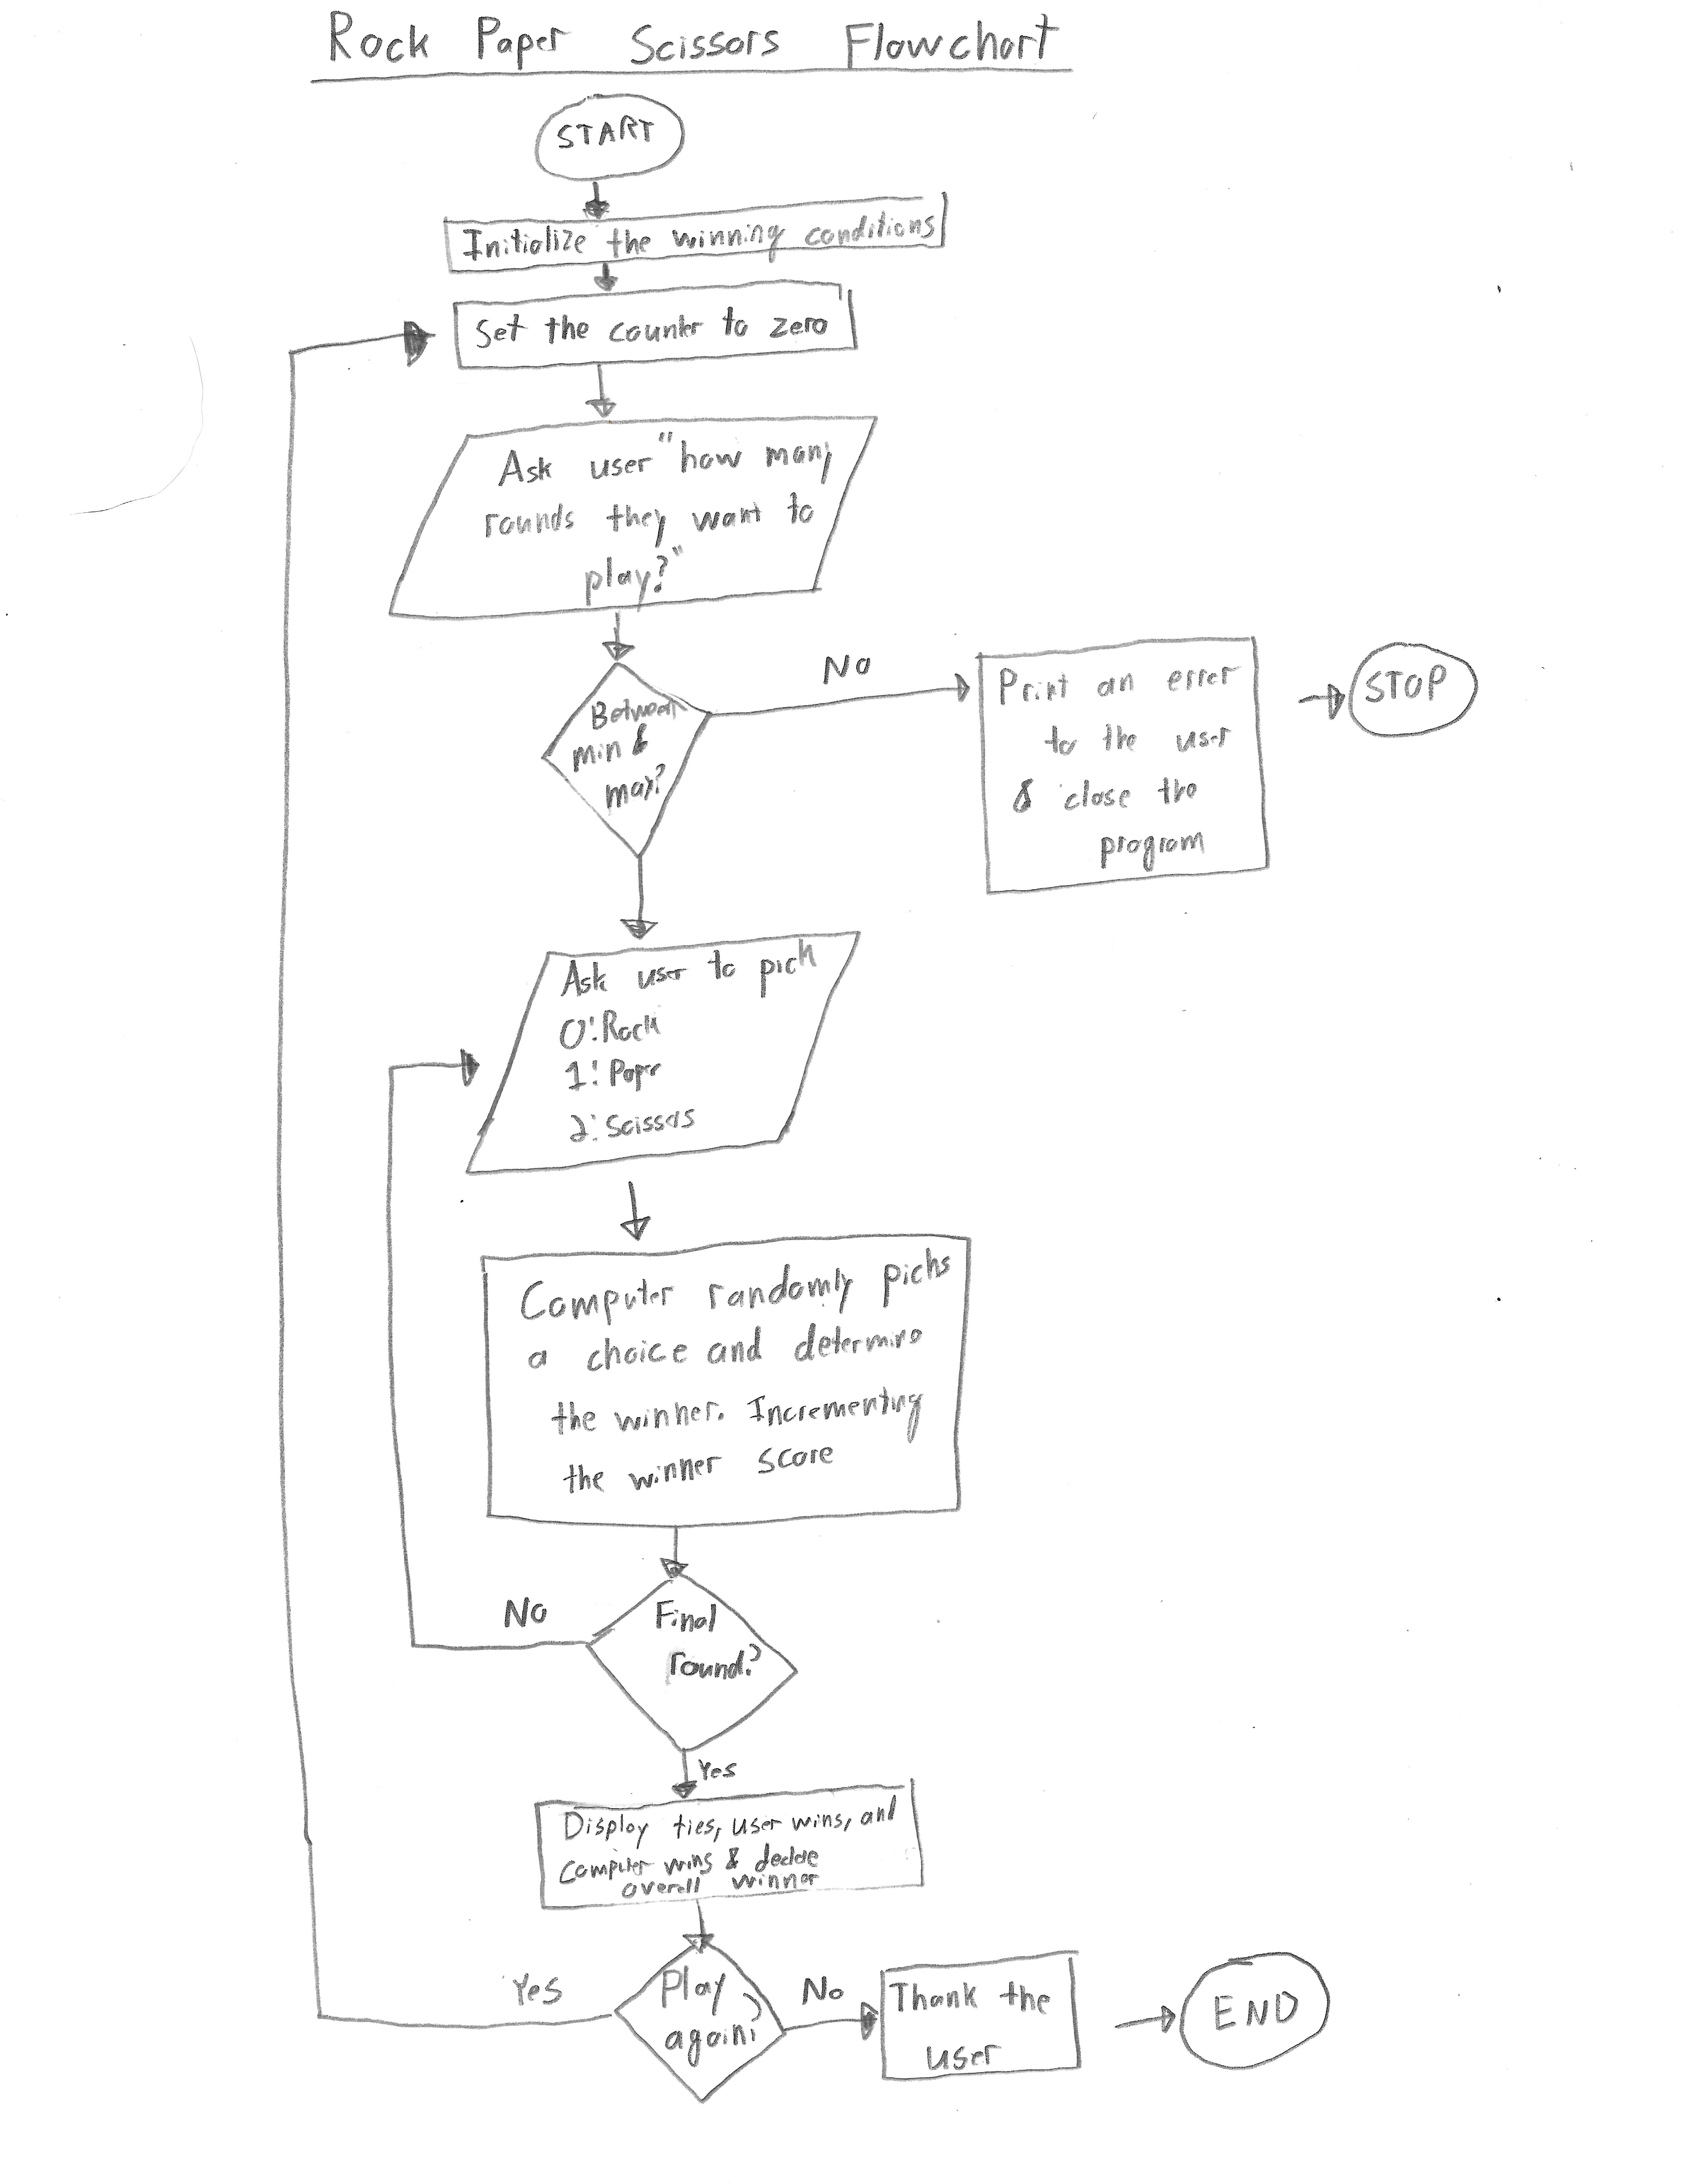 Rock Paper Scissors Flowchart
START
Initialize the winning conditions
Set the counter to zero
Ask user "how many
rounds they want to
play?"
No
Between
min &
max?
Print an error
to the user
& close the
program
STOP
Ask user to pick
0: Rock
1: Paper
2: Scissors
Computer randomly picks
a choice and determine
the winner. Incrementing
the winner score
No
Final
round?
Yes
Display ties, user wins, and
computer wins &
overall winner
Yes
Play
again?
No
Thank the
user
END